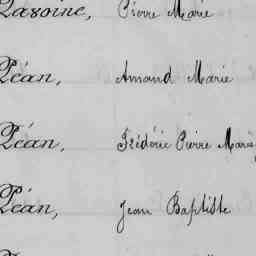 Lavoine, Pierre Marie
Péan, Amand Marie
Péan, Frédéric Pierre Marie
Péan, Jean Baptiste